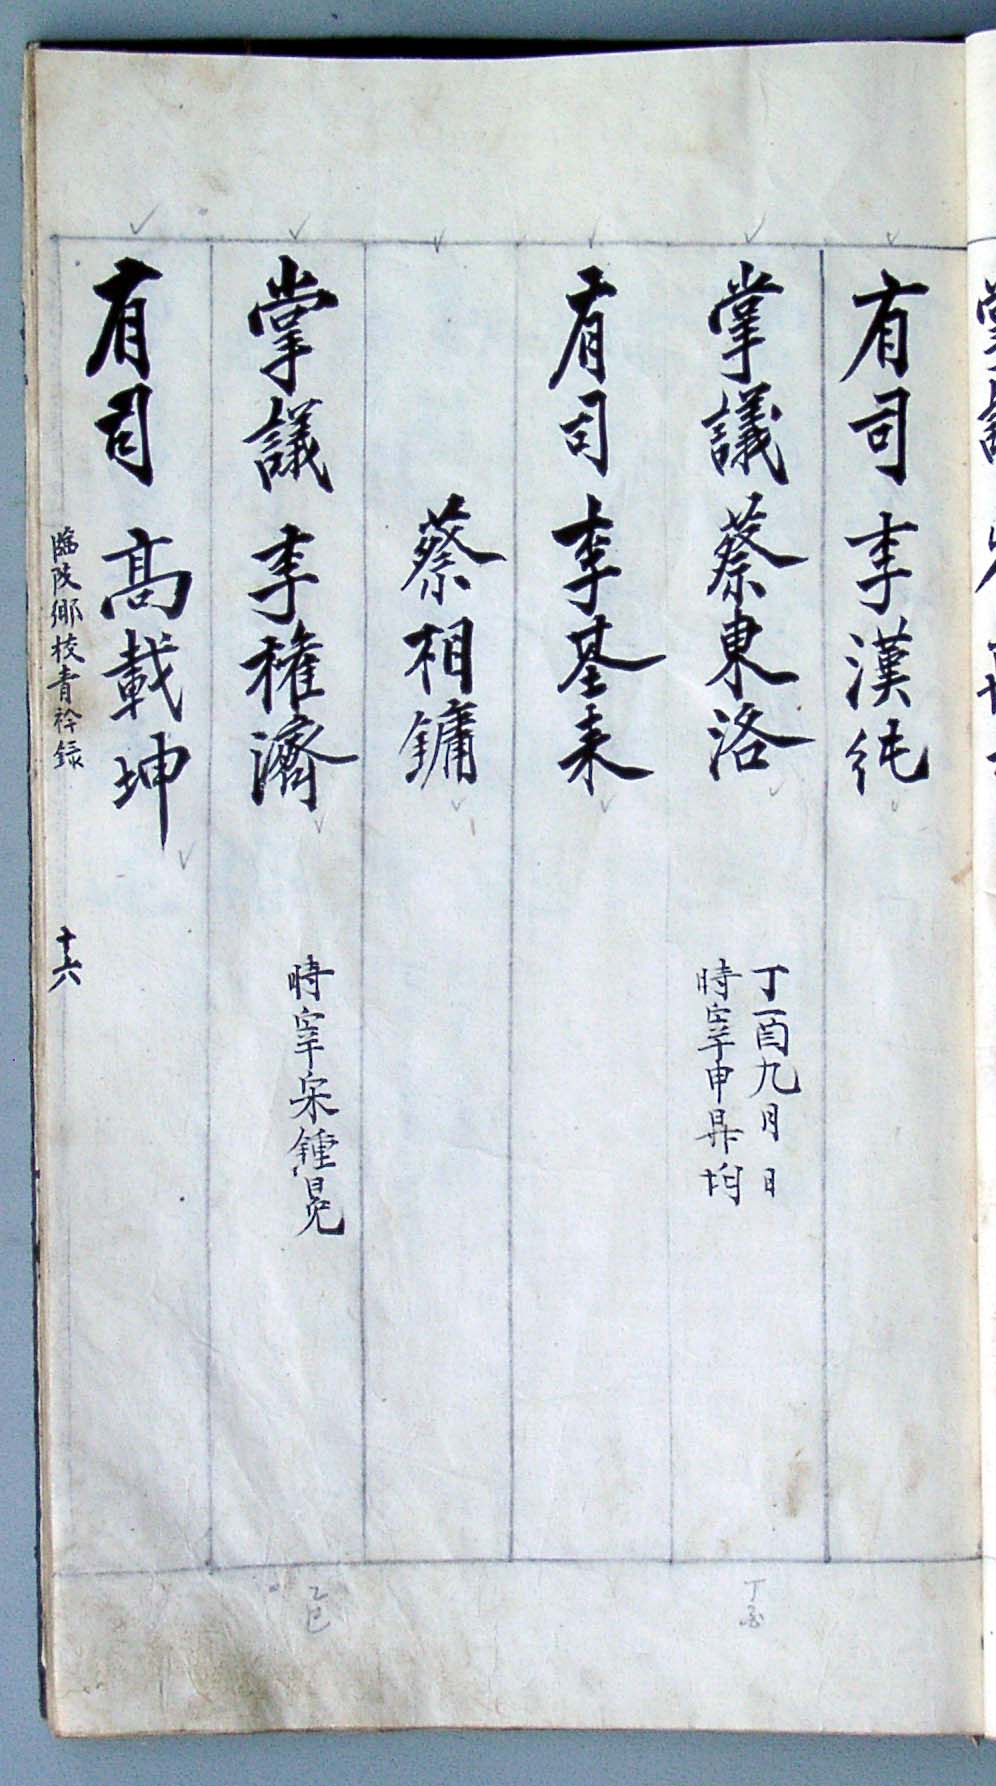 有司 李漢純
掌議 蔡東洛
丁酉九月 日
時宰申昇均
有司 李基来
蔡相鏞
掌議 李權濟
時宰宋鍾冕
有司 高載坤
臨陂鄉校青衿録
十六
丁酉
乙巳